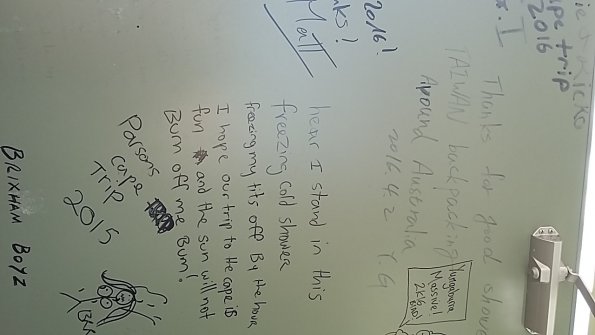 2016!
Matt
pe trip
2016
Thanks for good show
TAIWAN backpacking
Around Australia
2016.4.2 Y.G
hear I stand in this
freezing cold shower
freezing my tits off By the hour
I hope our trip to the cape is
fun and the sun will not
Burn off me Bum!
Parsons
cape
Trip
2015
Yungabura
Massive!
2K16
BRIXHAM BOYZ